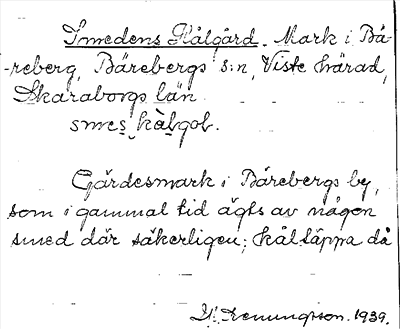 Smedens Kålgård. Mark i Bä-
-reberg, Bärebergs s:n, Viste härad,
Skaraborgs län
smes kàlgoḷ.
Gärdesmark i Bärebergs by,
som i gammal tid ägts av någon
smed där säkerligen; kåltäppa då
1939.